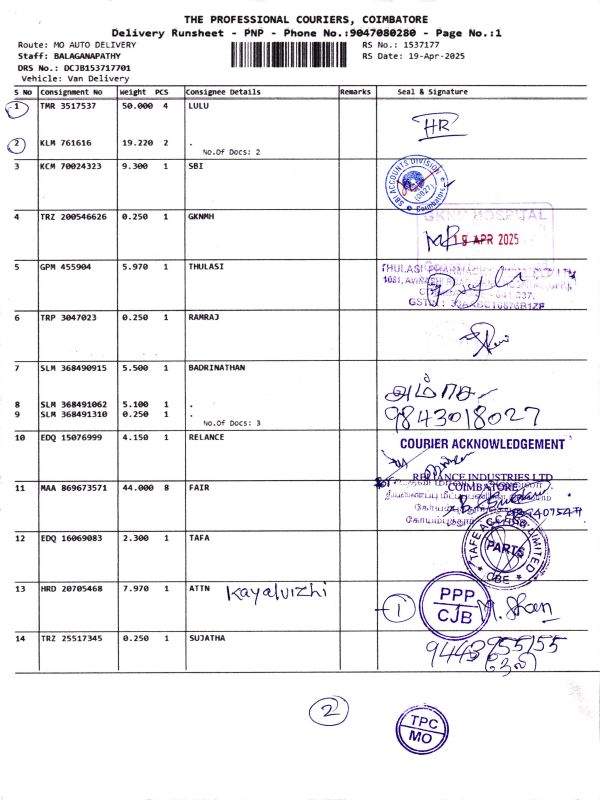 THE PROFESSIONAL COURIERS, COIMBATORE
Delivery Runsheet - PNP - Phone No.:9047080280 - Page No.:1
Route: MO AUTO DELIVERY
Staff: BALAGANAPATHY
DRS No.: DCJB153717701
Vehicle: Van Delivery
RS No.: 1537177
RS Date: 19-Apr-2025
S No Consignment No Weight PCS Consignee Details Remarks Seal & Signature
1 TMR 3517537 50.000 4 LULU
HR
2 KLM 761616 19.220 2 .
No.Of Docs: 2
3 KCM 70024323 9.300 1 SBI
SBI ACCOUNTS DIVISION
Coimbatore
4 TRZ 200546626 0.250 1 GKNMH
GKNM HOSPITAL
19 APR 2025
5 GPM 455904 5.970 1 THULASI
THULASI PHARMACIES
6 TRP 3047023 0.250 1 RAMRAJ
7 SLM 368490915 5.500 1 BADRINATHAN
8 SLM 368491062 5.100 1 .
9 SLM 368491310 0.250 1 .
No.Of Docs: 3
9843018027
10 EDQ 15076999 4.150 1 RELANCE
COURIER ACKNOWLEDGEMENT
RELIANCE INDUSTRIES LTD
COIMBATORE
11 MAA 869673571 44.000 8 FAIR
12 EDQ 16069083 2.300 1 TAFA
PARTS
CBE
13 HRD 20705468 7.970 1 ATTN Kayalvizhi
1
PPP
CJB
M. Shan
14 TRZ 25517345 0.250 1 SUJATHA
9443955155
2
TPC
MO